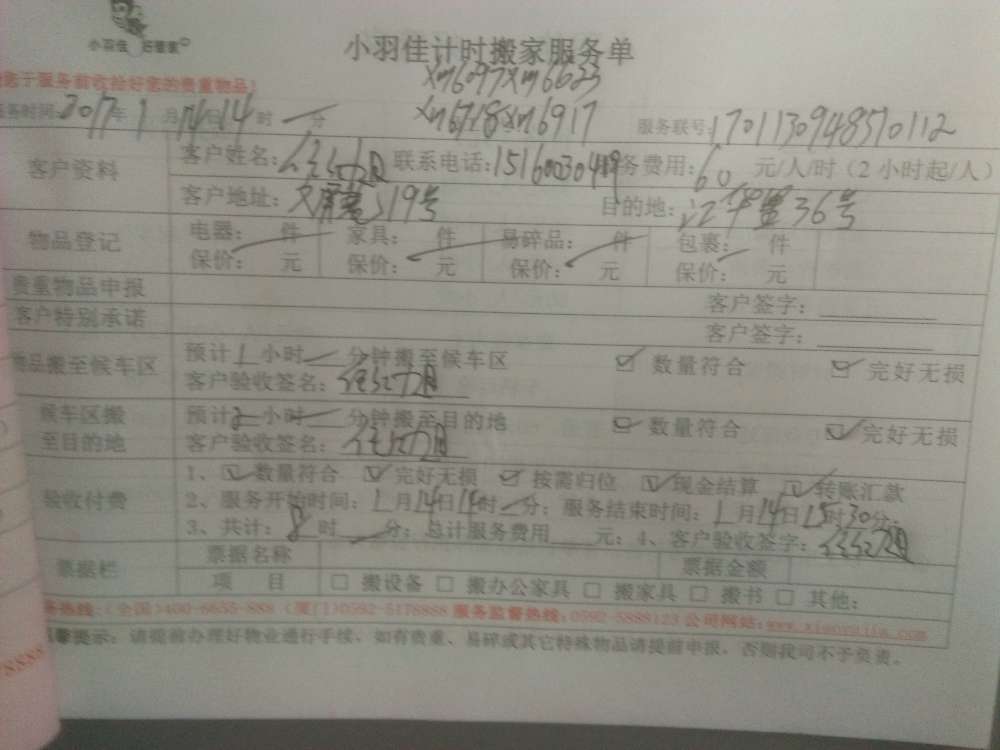 小羽佳 好管家
小羽佳计时搬家服务单
您于服务前收拾好您的贵重物品！
xm6097xm6623
xm6718xm6917
服务时间：2017年1月14日14时 分 服务联号：1701130948570112
客户资料 客户姓名： 联系电话：15160030419 务费用：60元/人/时（2小时起/人）
客户地址：文屏 319号 目的地： 36号
物品登记 电器： 件 家具： 件 易碎品： 件 包裹： 件
保价： 元 保价： 元 保价： 元 保价： 元
贵重物品申报 客户签字：
客户特别承诺 客户签字：
物品搬至候车区 预计1小时 分钟搬至候车区 ☑ 数量符合 ☑ 完好无损
客户验收签名：
候车区搬至目的地 预计2小时 分钟搬至目的地 ☑ 数量符合 ☑ 完好无损
客户验收签名：
验收付费 1、☑ 数量符合 ☑ 完好无损 ☑ 按需归位 ☑ 现金结算 ☑ 转账汇款
2、服务开始时间：1月14日14时 分；服务结束时间：1月14日15时30分；
3、共计：8时 分；总计服务费用 元；4、客户验收签字：
票据栏 票据名称 票据金额
项 目 □ 搬设备 □ 搬办公家具 □ 搬家具 □ 搬书 □ 其他：
务热线：（全国）400-6655-888（厦门）0592-5178888 服务监督热线：0592-5888123 公司网站：www.xiaoyujia.com
温馨提示：请提前办理好物业通行手续，如有贵重、易碎或其它特殊物品请提前申报，否则我司不予负责。
78888